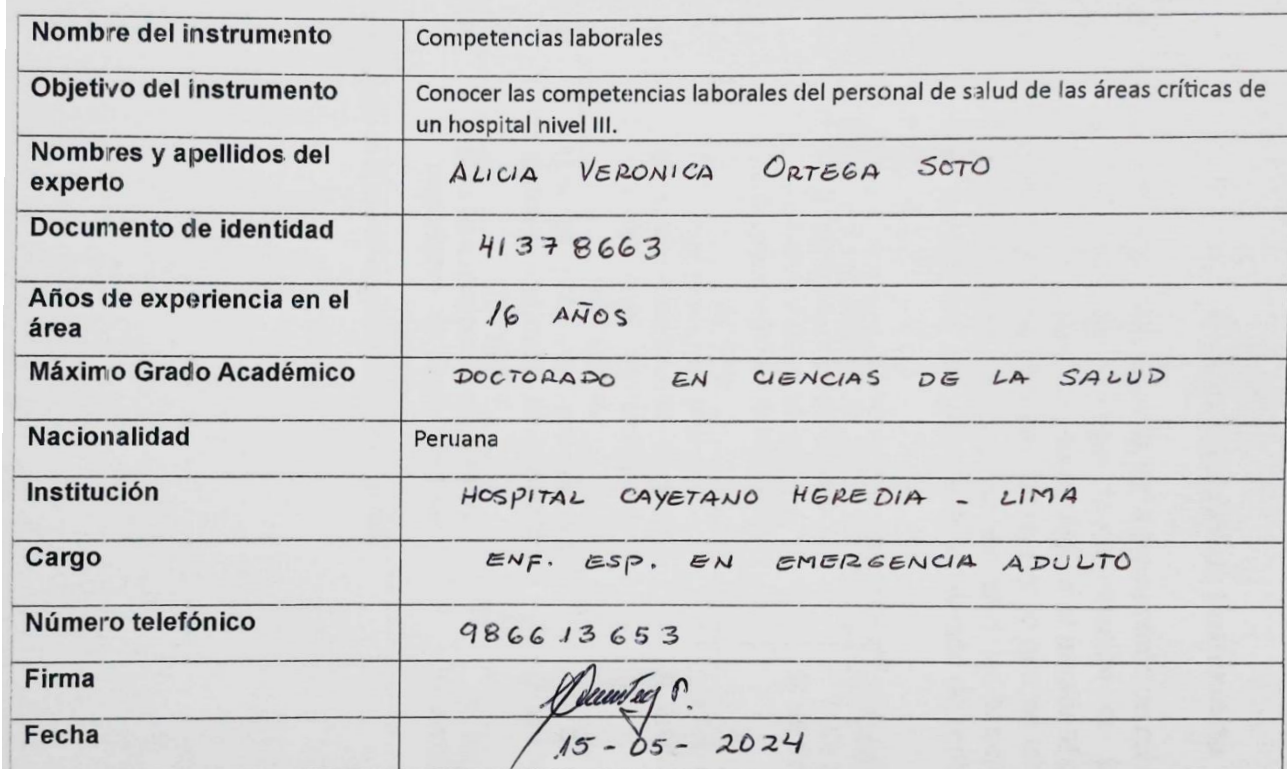 Nombre del instrumento
Competencias laborales
Objetivo del instrumento
Conocer las competencias laborales del personal de salud de las áreas críticas de
un hospital nivel III.
Nombres y apellidos del
experto
ALICIA VERONICA ORTEGA SOTO
Documento de identidad
41378663
Años de experiencia en el
área
16 AÑOS
Máximo Grado Académico
DOCTORADO EN CIENCIAS DE LA SALUD
Nacionalidad
Peruana
Institución
HOSPITAL CAYETANO HEREDIA - LIMA
Cargo
ENF. ESP. EN EMERGENCIA ADULTO
Número telefónico
986613653
Firma
Fecha
15-05-2024